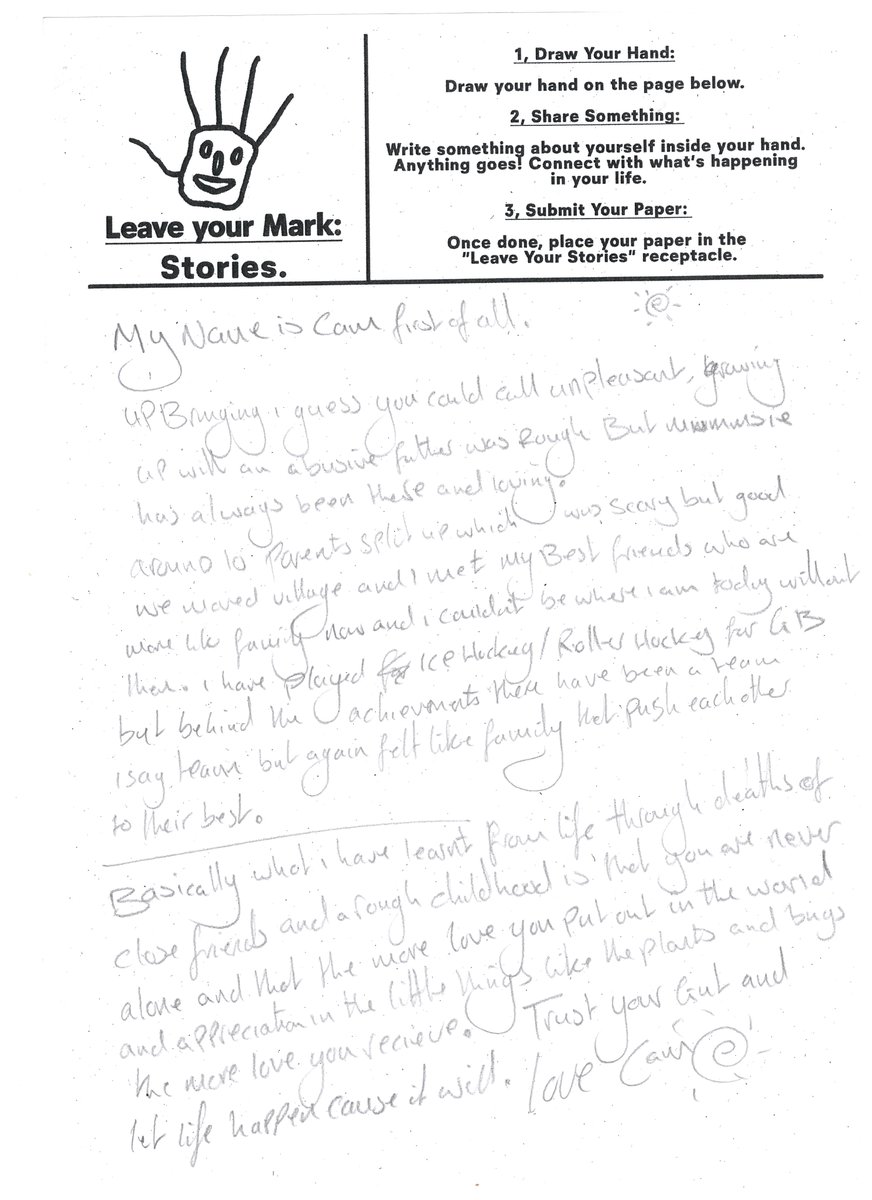 Leave your Mark:
Stories.
1, Draw Your Hand:
Draw your hand on the page below.
2, Share Something:
Write something about yourself inside your hand.
Anything goes! Connect with what's happening
in your life.
3, Submit Your Paper:
Once done, place your paper in the
"Leave Your Stories" receptacle.
My Name is Cam first of all.
UPBringing i guess you could call unpleasant, growing
up with an abusive father was Rough But mummsie
has always been there and loving.
around 10 Parents split up which was scary but good
we moved village and i met my Best friends who are
more like family now and i couldn't be where i am today without
them. i have played for Ice Hockey/Roller Hockey for GB
but behind the achievements there have been a team
i say team but again felt like family that push each other
to their best.
Basically what i have learnt from life through deaths of
close friends and a rough childhood is that you are never
alone and that the more love you put out in the world
and appreciation in the little things like the plants and bugs
the more love you recieve. Trust your Gut and
let life happen cause it will. love Cam